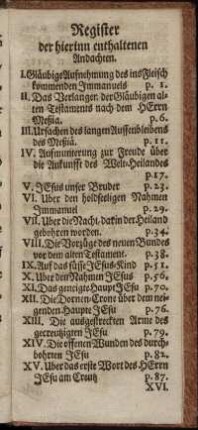 Register
der hierinn enthaltenen
Andachten.
I. Gläubige Aufnehmung des ins Fleisch
kommenden Immanuels p. 1.
II. Das Verlangen der Gläubigen al-
ten Testaments nach dem HErrn
Meßia. p. 6.
III. Ursachen des langen Aussenbleibens
des Meßiä. p. 11.
IV. Aufmunterung zur Freude über
die Ankunfft des Welt-Heilandes
p. 17.
V. JEsus unser Bruder p. 23.
VI. Uber den holdseligen Nahmen
Immanuel p. 29.
VII. Uber die Nacht, darin der Heiland
gebohren worden. p. 34.
VIII. Die Vorzüge des neuen Bundes
vor dem alten Testament. p. 38.
IX. Auf das süsse JEsus-Kind p. 51.
X. Uber den Nahmen JEsus p. 56.
XI. Das geneigte Haupt JEsu p. 70.
XII. Die Dornen-Crone über dem nei-
genden Haupte JEsu p. 76.
XIII. Die ausgestreckten Arme des
gecreutzigten JEsu p. 79.
XIV. Die offenen Wunden des durch-
bohrten JEsu p. 82.
XV. Uber das erste Wort des HErrn
JEsu am Creutz p. 87.
XVI.